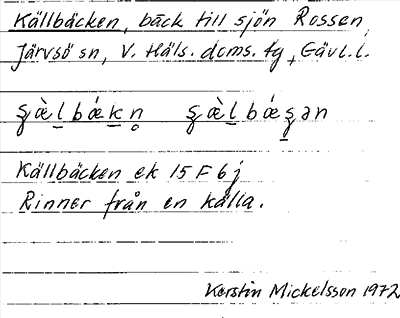 Källbäcken, bäck till sjön Rossen,
Järvsö sn, V. Häls. doms. tg, Gävl. l.
Källbäcken ek 15 F 6 j
Rinner från en källa.
Kerstin Mickelsson 1972